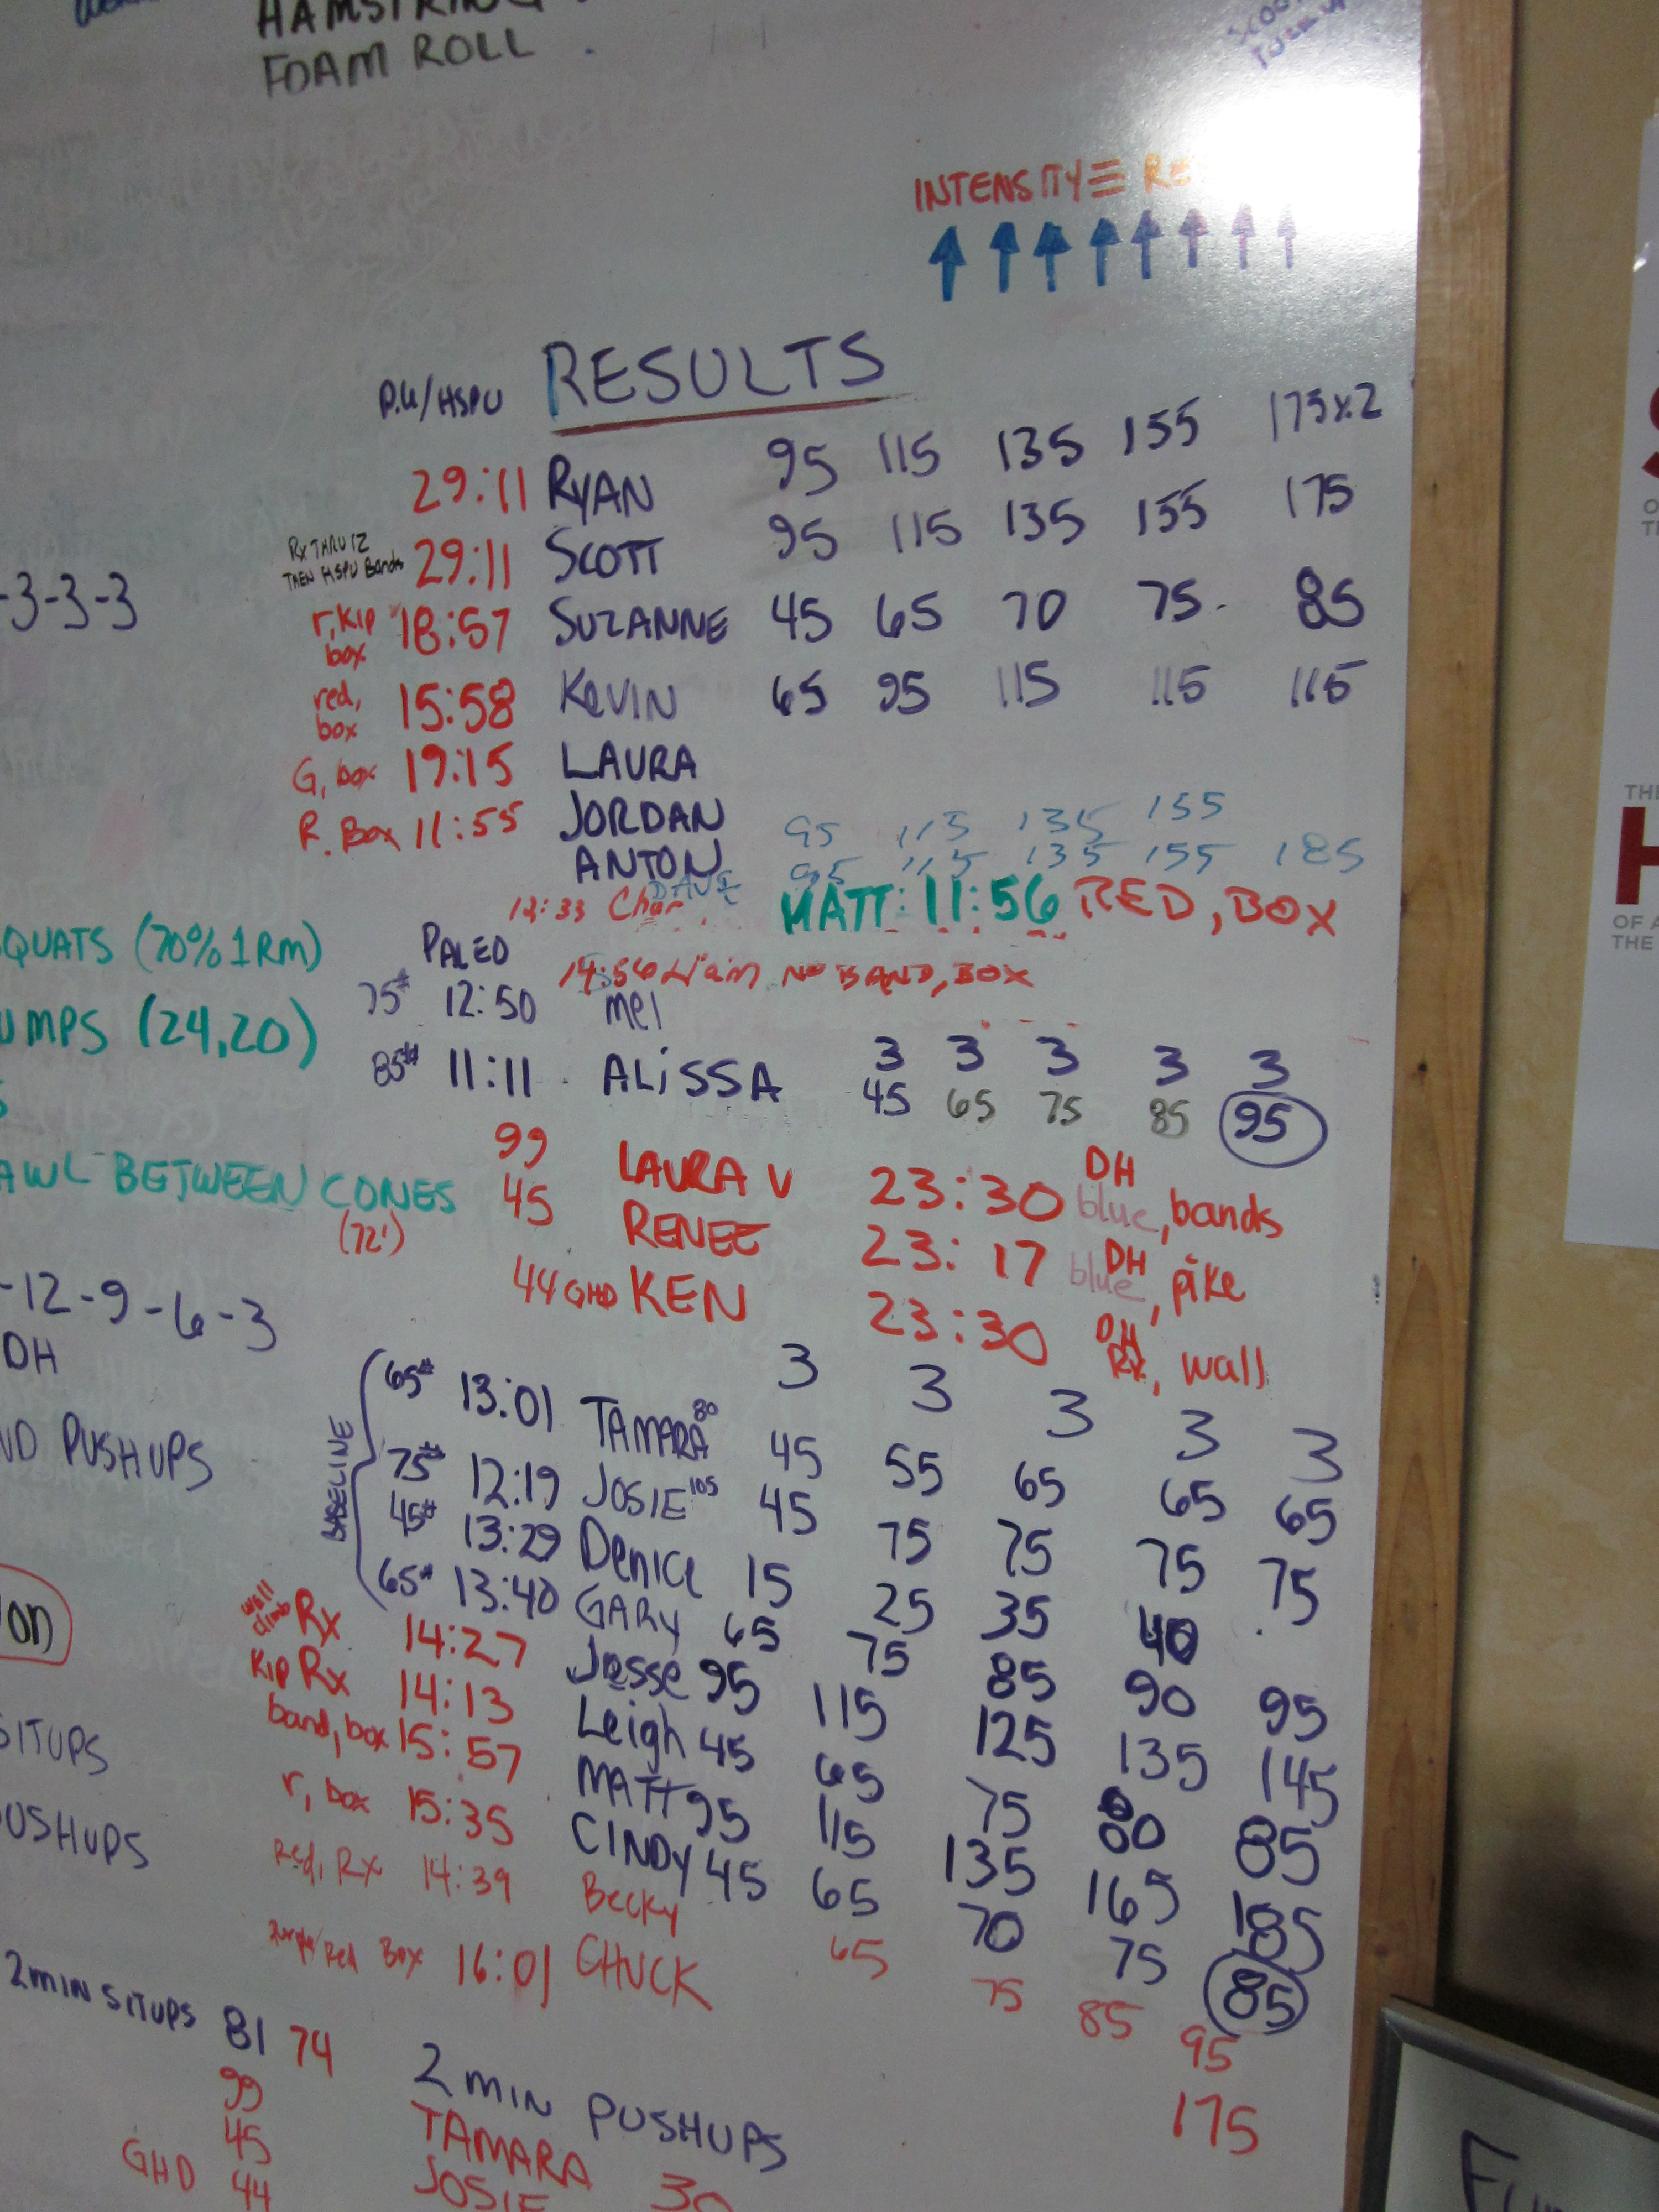 HAMSTRING
FOAM ROLL
INTENSITY ≡ RE
P.U/HSPU RESULTS
29:11 RYAN 95 115 135 155 175x2
Rx THRU 12
THEN HSPU Bands
29:11 SCOTT 95 115 135 155 175
-3-3-3
r, kip
box
18:57 SUZANNE 45 65 70 75 85
red,
box
15:58 KEVIN 65 95 115 115 115
G, box 19:15 LAURA
R. Box 11:55 JORDAN 95 115 135 155
ANTON 95 115 135 155 185
DAVE
12:33 MATT: 11:56 RED, BOX
QUATS (70% 1RM)
PALEO
14:56 Liam NO BAND, BOX
75# 12:50 mel
UMPS (24,20)
85# 11:11 ALISSA 3 3 3 3 3
45 65 75 85 95
AWL BETWEEN CONES
(72')
99 LAURA V 23:30 DH blue, bands
45 RENEE 23:17 DH blue, pike
44 GHD KEN 23:30 DH Rx, wall
-12-9-6-3
DH
3 3 3 3 3
BASELINE
65# 13:01 TAMARA 80 45 55 65 65 65
ND PUSHUPS
75# 12:19 JOSIE 105 45 75 75 75 75
45# 13:29 Denice 15 25 35 40
65# 13:40 GARY 65 75 85 90 95
on
wall
climb
Rx 14:27 Jesse 95 115 125 135 145
Kip Rx 14:13 Leigh 45 65 75 80 85
band, box 15:57 MATT 95 115 135 165 185
SITUPS
r, box 15:35 CINDY 45 65 70 75 85
USHUPS
Red, Rx 14:39 Becky 65 75 85 95
Red Box 16:01 CHUCK 175
2 min SITUPS 81 74
2 MIN PUSHUPS
99 TAMARA
45
GHD 44
JOSIE 30
THE
H
OF A
THE